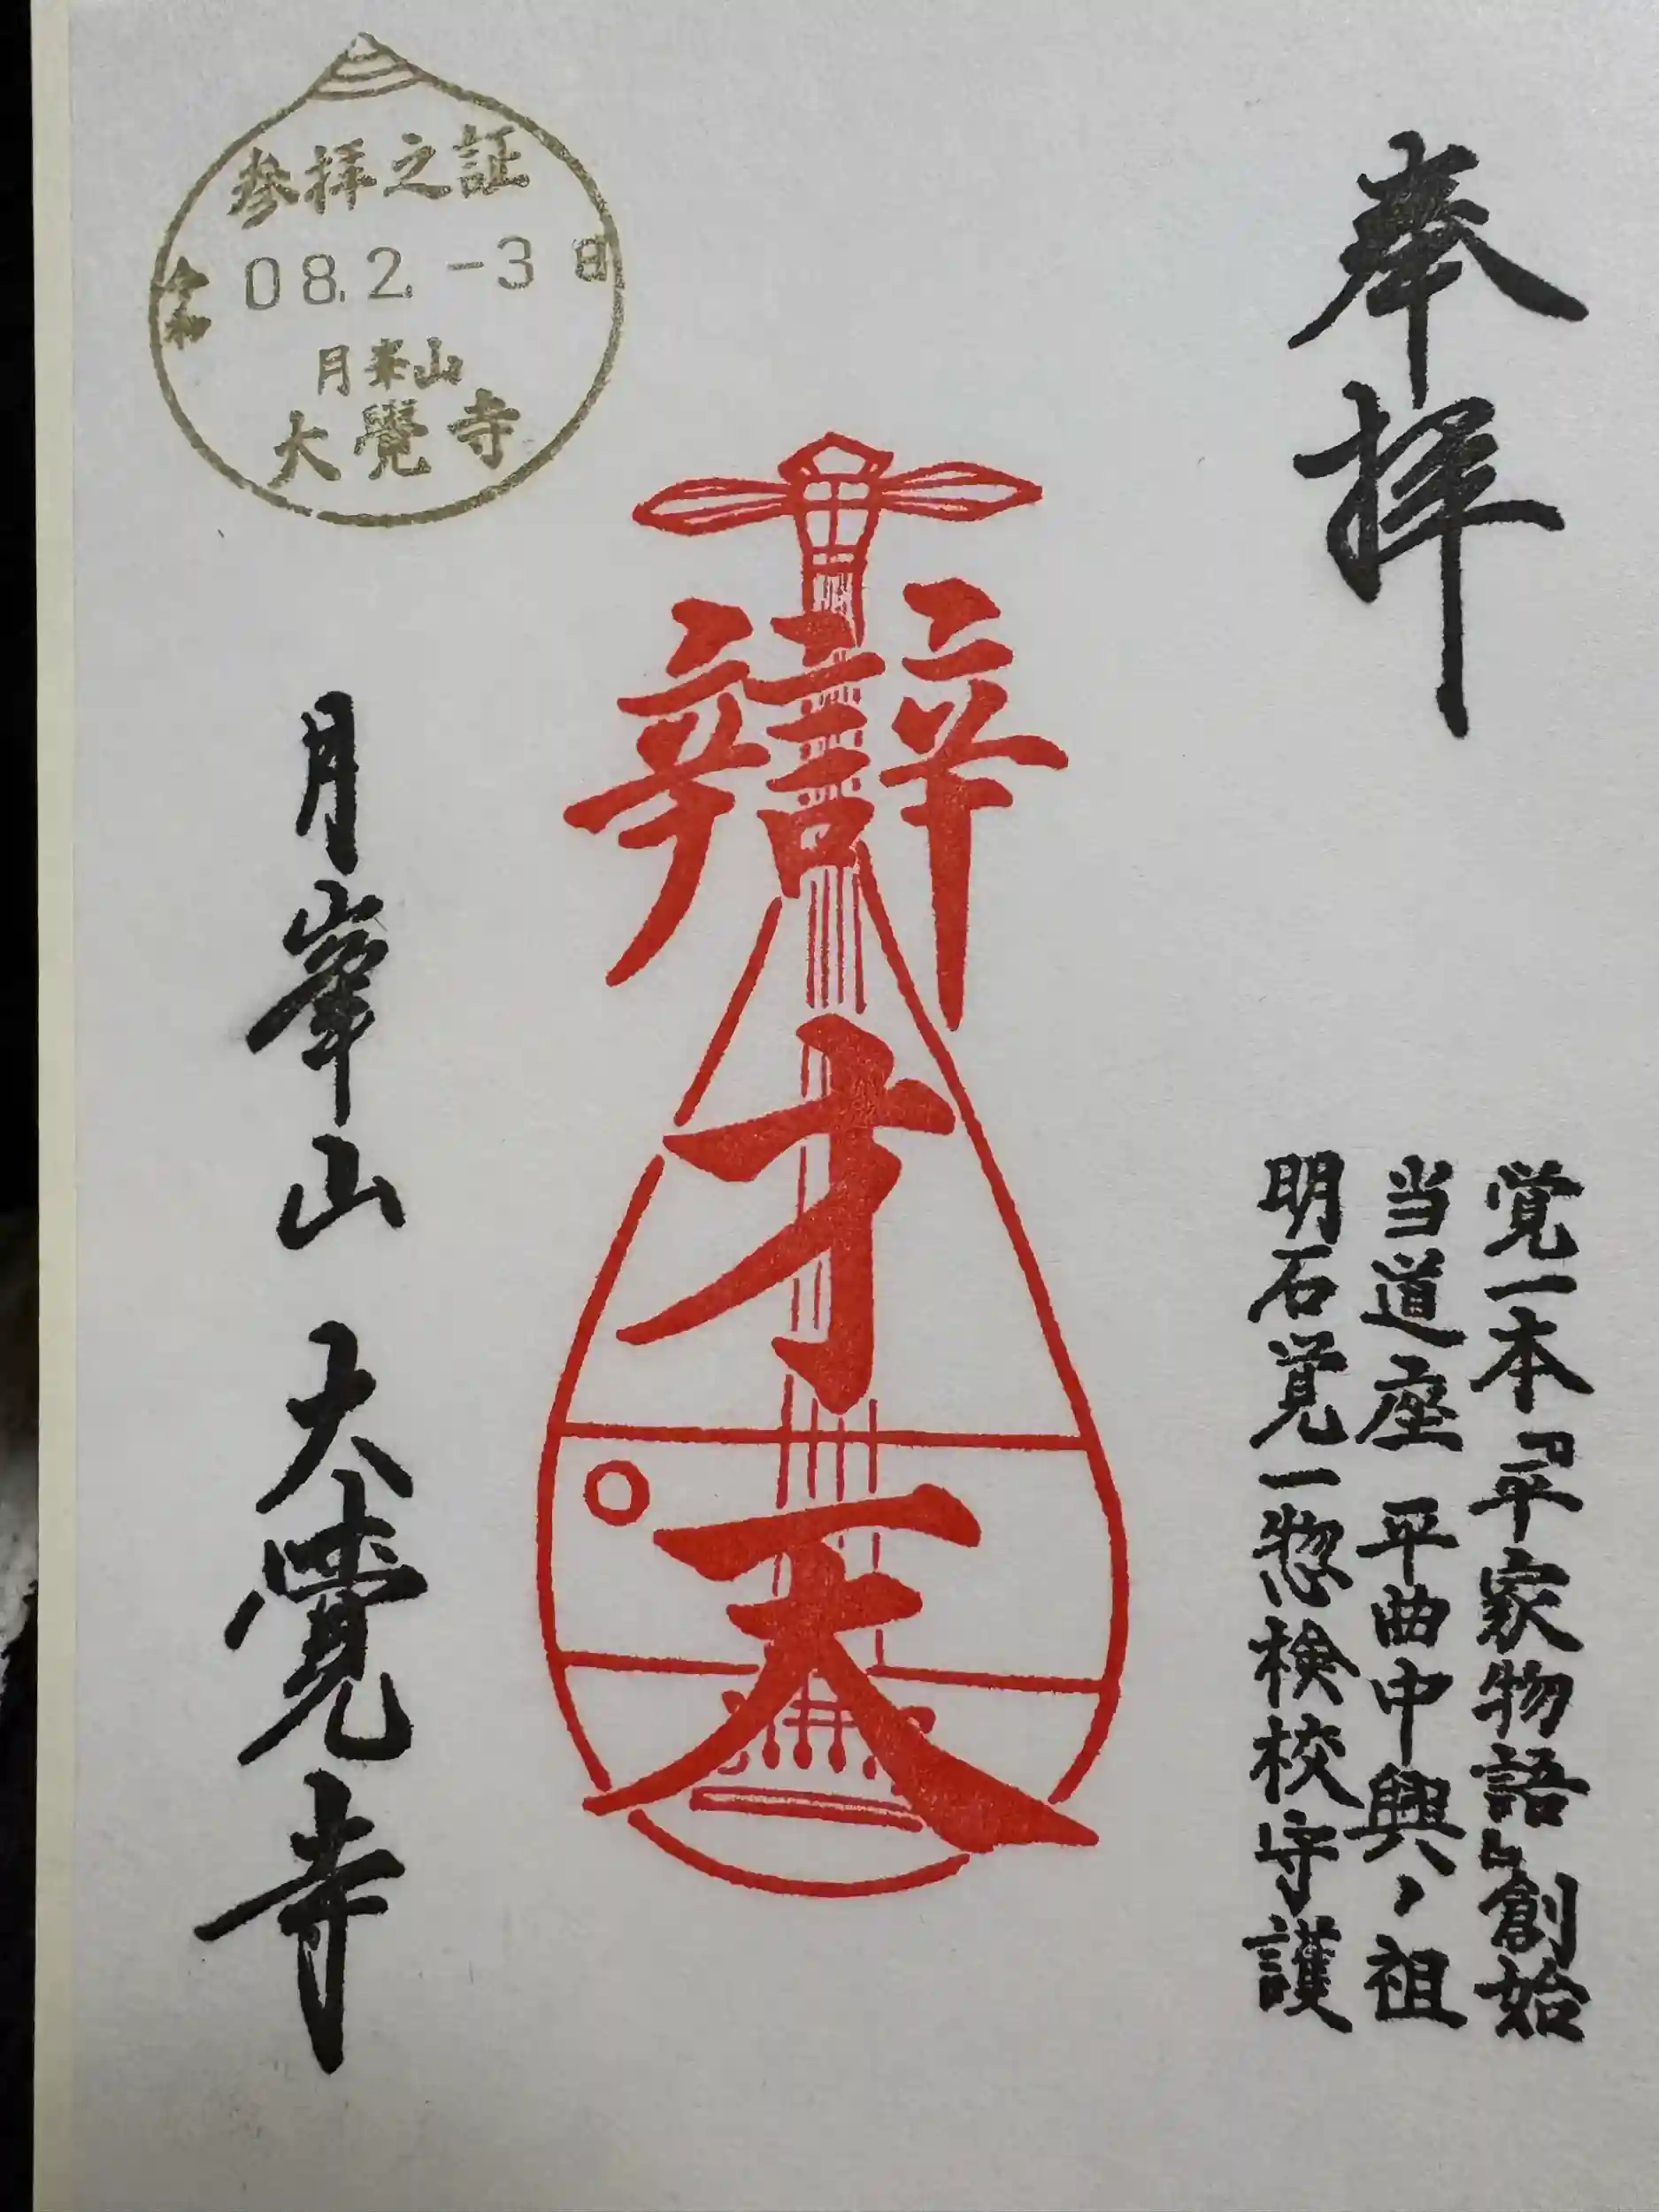 奉拝
覚一本『平家物語』創始
当道座 平曲中興ノ祖
明石覚一惣検校守護
辯才天
参拝之証
令和08.2.-3日
月峯山
大覺寺
月峯山 大覺寺